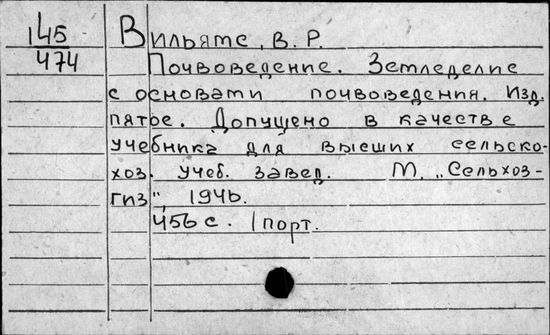 145
474
Вильямс, В. Р.
Почвоведение. Земледелие
с основами почвоведения. Изд.
пятое. Допущено в качестве
учебника для высших сельско-
хоз. учеб. завед. М. „Сельхоз-
гиз", 1946.
456 с. 1 порт.